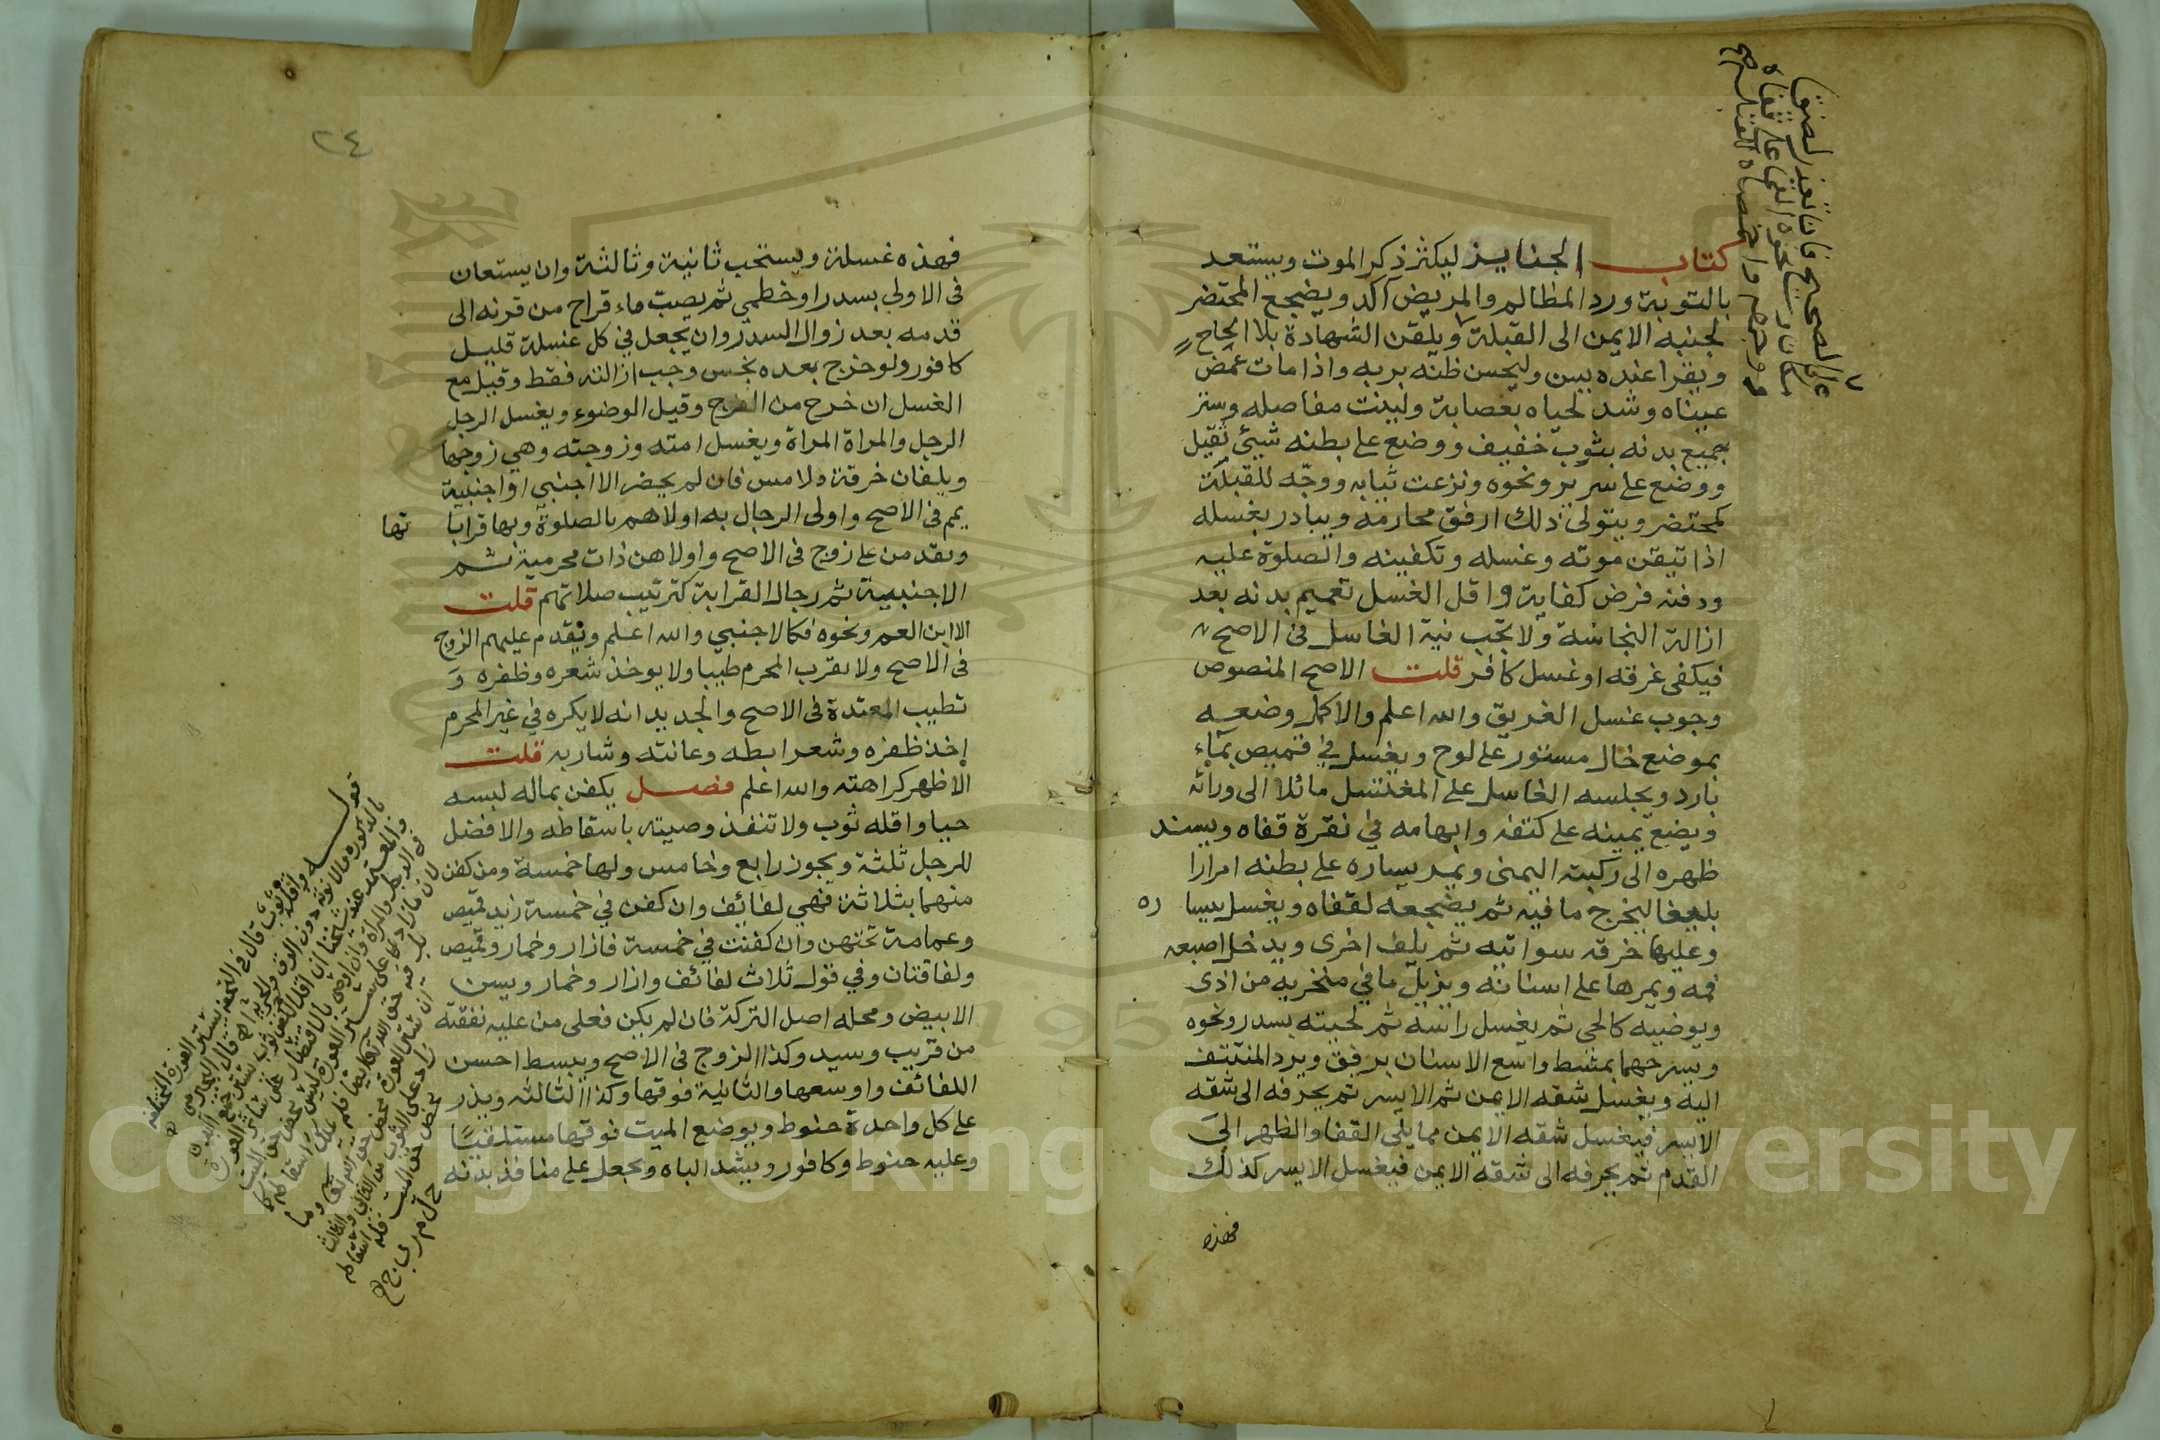 كتاب الجنايز ليكثر ذكر الموت ويستعد
بالتوبة ورد المظالم والمريض آكد ويضجع المحتضر
لجنبه الايمن الى القبلة ويلقن الشهادة بلا الحاح
ويقرا عنده يس وليحسن ظنه بربه واذا مات غمض
عيناه وشد لحياه بعصابة ولينت مفاصله وستر
جميع بدنه بثوب خفيف ووضع على بطنه شيئ ثقيل
ووضع على سرير ونحوه ونزعت ثيابه ووجه للقبلة
كمحتضر ويتولى ذلك ارفق محارمه ويبادر بغسله
اذا تيقن موته وغسله وتكفينه والصلوة عليه
ودفنه فرض كفاية واقل الغسل تعميم بدنه بعد
ازالة النجاسة ولا تجب نية الغاسل في الاصح
فيكفي غرقه اوغسل كافر قلت الاصح المنصوص
وجوب غسل الغريق والله اعلم والاكمل وضعه
بموضع خال مستور على لوح ويغسل في قميص بماء
بارد ويجلسه الغاسل على المغتسل مائلا الى ورائه
ويضع يمينه على كتفه وابهامه في نقرة قفاه ويسند
ظهره الى ركبته اليمنى ويمر يساره على بطنه امرارا
بليغا ليخرج ما فيه ثم يضجعه لقفاه ويغسل بيسا ره
وعليها خرقة سواتيه ثم يلف اخرى ويدخل اصبعه
فمه ويمرها على اسنانه ويزيل ما في منخريه من اذى
ويوضيه كالحي ثم يغسل راسه ثم لحيته بسدر ونحوه
ويسرحهما بمشط واسع الاسنان برفق ويرد المنتتف
اليه ويغسل شقه الايمن ثم الايسر ثم يحرفه الى شقه
الايسر فيغسل شقه الايمن مما يلي القفا والظهر الى
القدم ثم يحرفه الى شقه الايمن فيغسل الايسر كذلك
فهذه
٢٤
فهذه غسلة ويستحب ثانية وثالثة وان يستعان
في الاولى بسدر اوخطمي ثم يصب ماء قراح من قرنه الى
قدمه بعد زوال السدر وان يجعل في كل غسلة قليل
كافور ولو خرج بعده نجس وجب ازالته فقط وقيل مع
الغسل ان خرج من الفرج وقيل الوضوء ويغسل الرجل
الرجل والمراة المراة ويغسل امته وزوجته وهي زوجها
ويلفان خرقة ولا مس فان لم يحضر الا اجنبي او اجنبية
يمم في الاصح واولى الرجال به اولاهم بالصلوة وبها قرابا تها
ويقدمن على زوج في الاصح واولاهن ذات محرمية ثم
الاجنبية ثم رجال القرابة كترتيب صلاتهم قلت
الا ابن العم ونحوه فكالاجنبي والله اعلم ويقدم عليهم الزوج
في الاصح ولا يقرب المحرم طيبا ولا يوخذ شعره وظفره و
تطيب المعتدة في الاصح والجديد انه لا يكره في غير المحرم
اخذ ظفره وشعر ابطه وعانته وشاربه قلت
الاظهر كراهته والله اعلم فصل يكفن بماله لبسه
حيا واقله ثوب ولا تنفذ وصيته باسقاطه والافضل
للرجل ثلثة ويجوز رابع وخامس ولها خمسة ومن كفن
منهما بثلاثة فهي لفائف وان كفن في خمسة زيد قميص
وعمامة تحتهن وان كفنت في خمسة فازار وخمار وقميص
ولفافتان وفي قول ثلاث لفائف وازار وخمار ويسن
الابيض ومحله اصل التركة فان لم يكن فعلى من عليه نفقته
من قريب وسيد وكذا الزوج في الاصح ويبسط احسن
اللفائف واوسعها والثانية فوقها وكذا الثالثه ويذر
على كل واحدة حنوط ويوضع الميت فوقها مستلقيا
وعليه حنوط وكافور ويشد الياه ويجعل على منافذ بدنه
Copyright © King Saud University